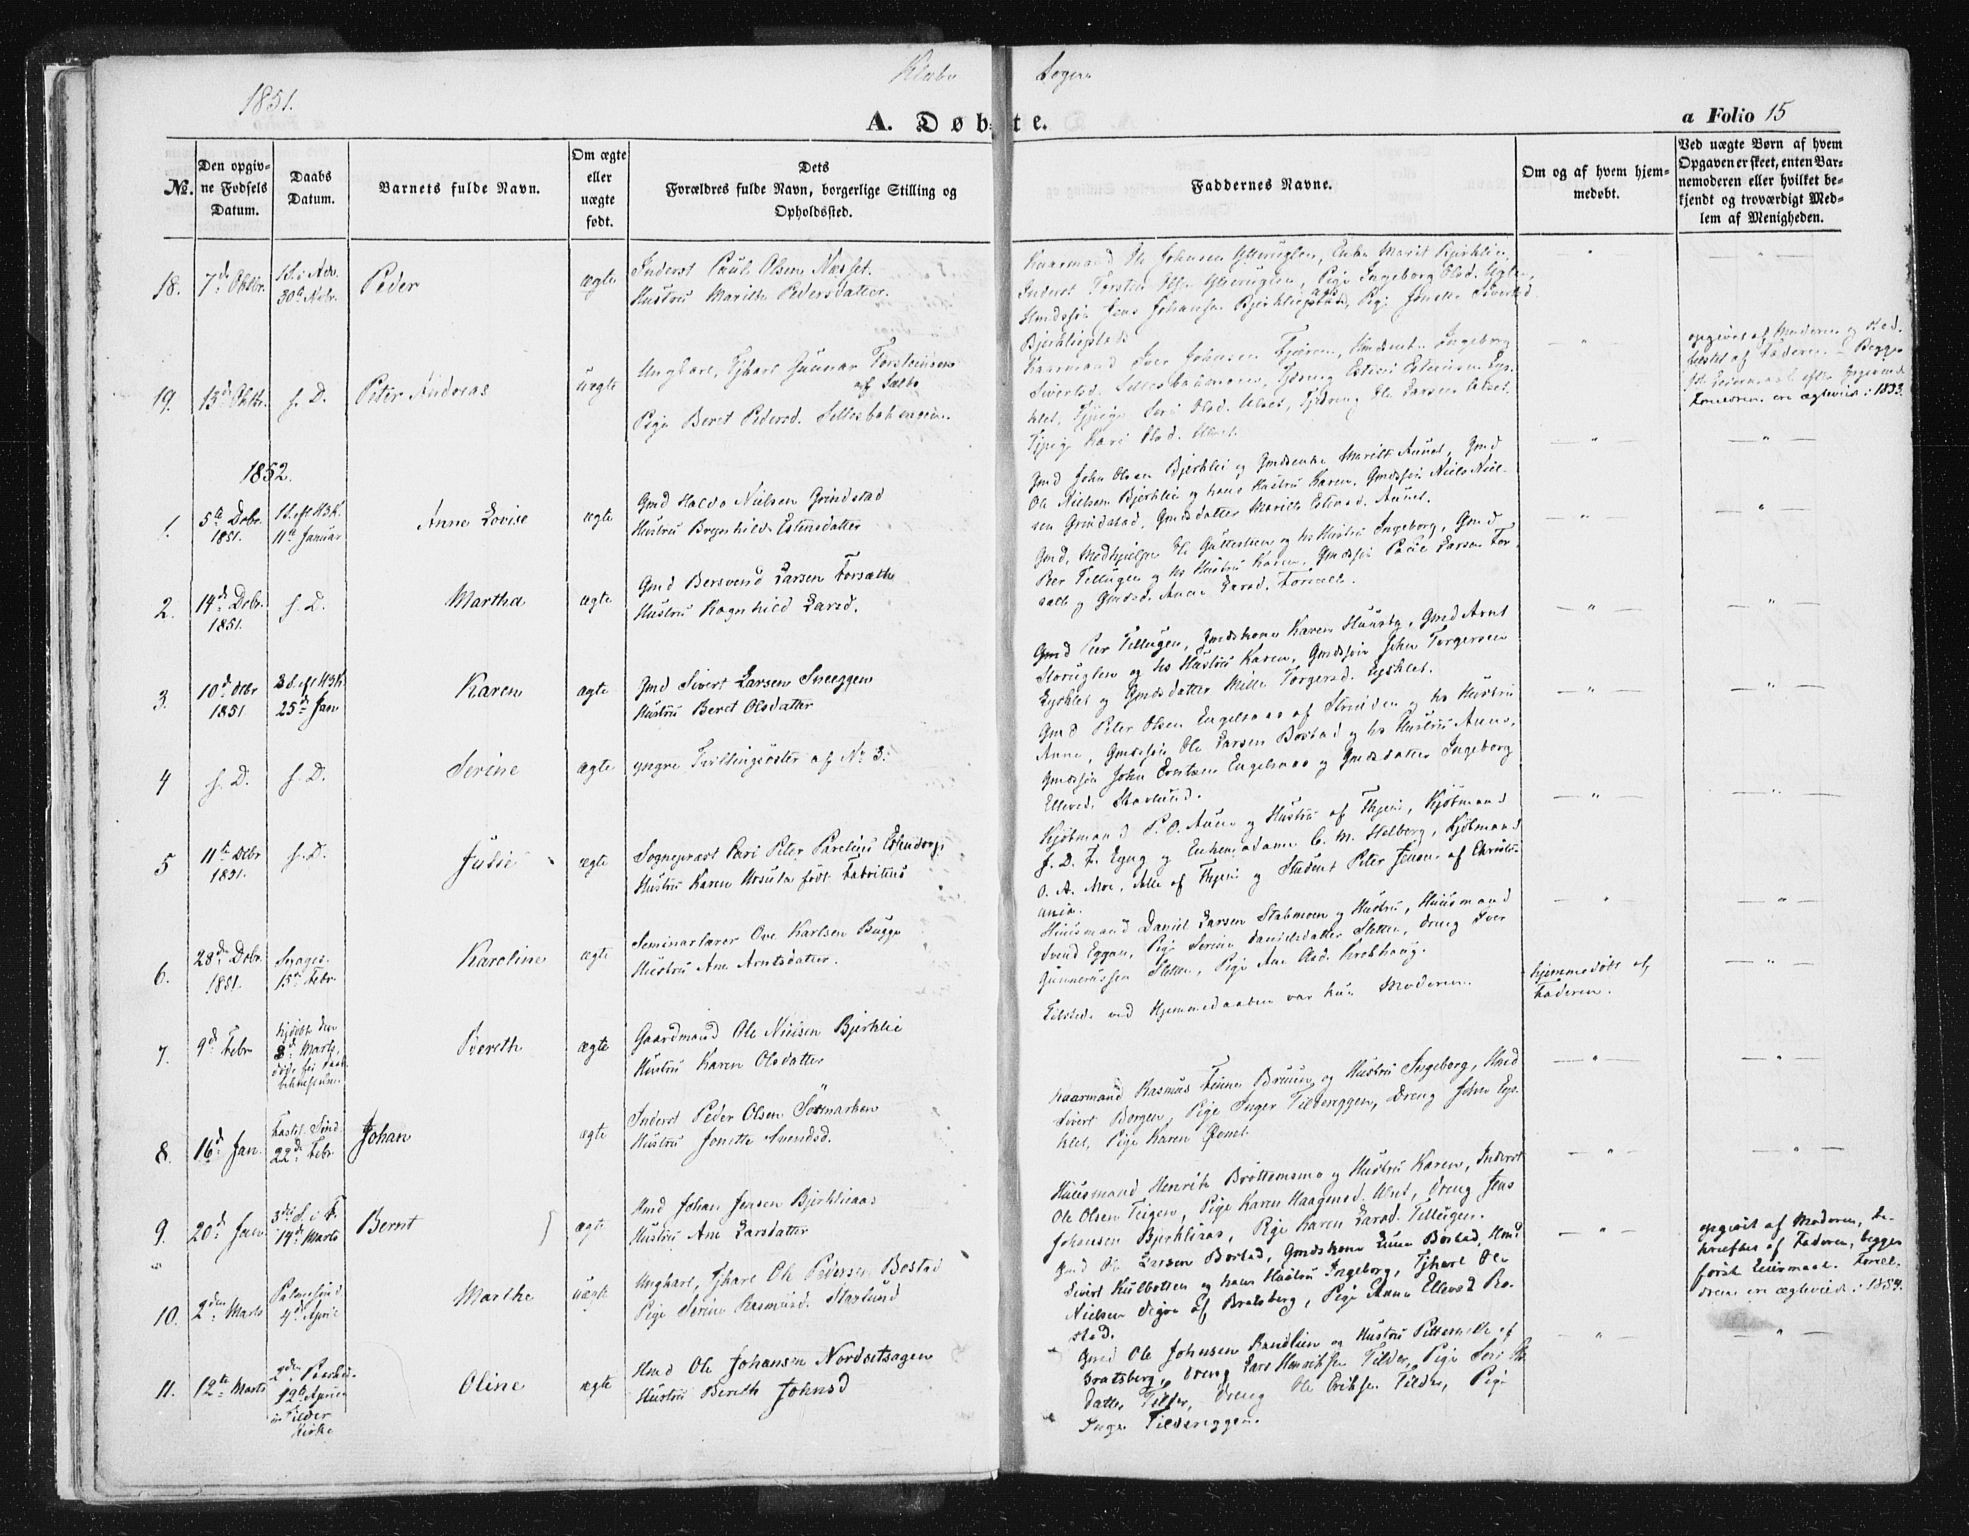 1851.
Klæbo
Sogn
A. Døbte.
a Folio 15
No.
Den opgiv-
ne Fødsels
Datum.
Daabs
Datum.
Barnets fulde Navn.
Om ægte
eller
uægte
født.
Dets
Forældres fulde Navn, borgerlige Stilling og
Opholdssted.
Faddernes Navne.
Om og af hvem hjem-
medøbt.
Ved uægte Børn af hvem
Opgaven er skeet, enten Bar-
nemoderen eller hvilket be-
kjendt og troværdigt Med-
lem af Menigheden.
18.
7de Oktbr.
1 S. i Adv.
30te Novbr.
Peder
ægte
Inderst Paul Olsen Næsset.
Hustru Marith Pedersdatter.
Kaarmand Ole Johnsen Ytteruglen, Enke Marit Bjerklie,
Inderst Torsten Olsen Ytteruglen, Pige Ingeborg Olsd. Uglen,
Hmdssøn Jens Johansen Bjerkliaas, Pige Jonette Sivertsd
Bjerklieslet.
19.
15de Oktbr.
s. D.
Peter Andreas
uægte
Ungkarl, Tjkarl Gunnar Torsteinsen
af Sælbo
Pige Beret Pedersd. Sellesbakengien.
Kaarmand Iver Johnsen Fjærem, Hmdsenke Ingeborg
Sivertsd. Sellesbakmoen, Tjdreng Esten Estensen Eys-
klet, Tjpige Seri Olsd. Ulset, Tjdreng Ole Larsen Ulset,
Tjpige Kari Olsd. Ulset.
opgivet af Moderen og Stad-
fæstet af Faderen. - Begges
1ste Leiermaal efter Opgivende
Forældrene ere ægteviede i 1853.
1852.
1.
5te Debr.
1851.
1 S. eft H3K.
11te Januar
Anne Lovise
ægte
Gmd Haldo Nielsen Grindstad
Hustru Bognhild Estensdatter
Gmd John Olsen Bjerklie og Gmdsenke Marith Aunet, Gmd
Ole Nielsen Bjerklie og hans Hustru Karen, Gmdssøn Niels Niel-
sen Grindstad, Gmdsdatter Marith Estensd. Aunet.
2.
14de Debr.
1851.
s. D.
Martha
ægte
Gmd Bersvend Larsen Forsæth
Hustru Ragnhild Larsd.
Gmd, Medhjelper Ole Guttesteen og hs Hustru Ingeborg, Gmd
Peer Tellugen og hs Hustru Karen, Gmdssøn Paul Larsen For-
sæth og Gmdsd. Anne Larsd. Forsæth.
3.
10de Debr
1851
3 S. eft H3K.
25de Jan
Karen
ægte
Gmd Sivert Larsen Sneeggen
Hustru Beret Olsdatter
Gmd Peer Tellugen, Gmdskone Karen Huusby, Gmd Arnt
Storuglen og hs Hustru Karen, Gmdssøn John Torgersen
Eysklet og Gmdsdatter Mille Torgersd. Eysklet.
4
s. D.
s. D.
Serine
ægte
yngre Tvillingsøster af No 3.
Gmd Peter Olsen Engelsaas af Strinden og hs Hustru
Anne, Gmdssøn Ole Larsen Bostad og hs Hustru Anne,
Gmdssøn John Evertsen Engelsaas og Gmdsdatter Ingeborg
Ellevsd. Stavlund.
5
11te Debr
1851.
s. D.
Julie
ægte
Sognepræst Carl Peter Parelius Essendrop
Hustru Karen Ursula født Fabritius
Kjøbmand P. O. Aune og Hustru af Thjem, Kjøbmand
J. D. F. Eyng og Enkemadame C. M. Stolberg, Kjøbmand
O. A. Moe, Alle af Thjem og Student Peter Jensen af Christi-
ania.
6.
28de Debr.
1851.
Sexages.
15de Febr.
Karoline
ægte
Seminarlærer Ove Karlsen Bugge
Hustru Ane Arntsdatter.
Huusmand Daniel Larsen Stabmoen og Hustru, Huusmand
Svend Eggan, Pige Serine Danielsdatter Sletten, Dreng Iver
Gunnerussen Sletten, Pige Ane Olsd. Kirkhaug.
7.
9de Febr
hjdøbt den
3de Marts,
døde før Daab-
bekræftelsen.
Bereth
ægte
Gaardmand Ole Nielsen Bjerklie
Hustru Karen Olsdatter
Tilstede ved Hjemmedaaben var kun Moderen.
hjemmedøbt af
Faderen.
8.
16de Jan.
Fastel. Sønd
22de Febr
Johan
ægte
Inderst Peder Olsen Sørmarken
Hustru Jonette Svendsd.
Kaarmand Rasmus Finne Bruun og Hustru Ingeborg, Hmd
Sivert Borgen, Pige Inger Tildereggen, Dreng John Eys-
klet, Pige Karen Osnet.
9.
20de Jan
3die S. i F.
14de Marts
Bernt
ægte
Hmd Johan Jensen Bjerkliaas
Hustru Ane Larsdatter
Huusmand Henrik Brøttemsmo og Hustru Karen, Inderst
Ole Olsen Teigen, Pige Karen Haagensd. Ulset, Dreng Jens
Johansen Bjerkliaas, Pige Karen Larsd. Tellugen.
10.
2den Marts
Palmesønd
4de April
Marthe
uægte
Ungkarl, Tjkarl Ole Pedersen Bostad
Pige Serine Rasmusd. Stavlund
Gmd Ole Larsen Bostad, Gmdskone Anne Bostad, Hmd
Sivert Kulbotten og hans Hustru Ingeborg, Tjkarl Ole
Nielsen Digre af Bratsberg, Pige Anne Ellevsd Bo-
stad.
opgivet af Moderen, be-
kræftet af Faderen, begges
første Leiermaal. Foræl-
drene ere ægteviede i 1854.
11.
12te Marts
2den Paaskd.
12te April
i Tilder
Kirke
Oline
ægte
Hmd Ole Johansen Nordsetsagen
Hustru Bereth Johnsd
Gmd Ole Johnsen Randlien og Hustru Pitternille af
Bratsberg, Dreng Lars Henriksen Tilder, Pige Seri Ols-
datter Tilder, Dreng Ole Eriksen Tilder, Pige
Inger Tildereggen.